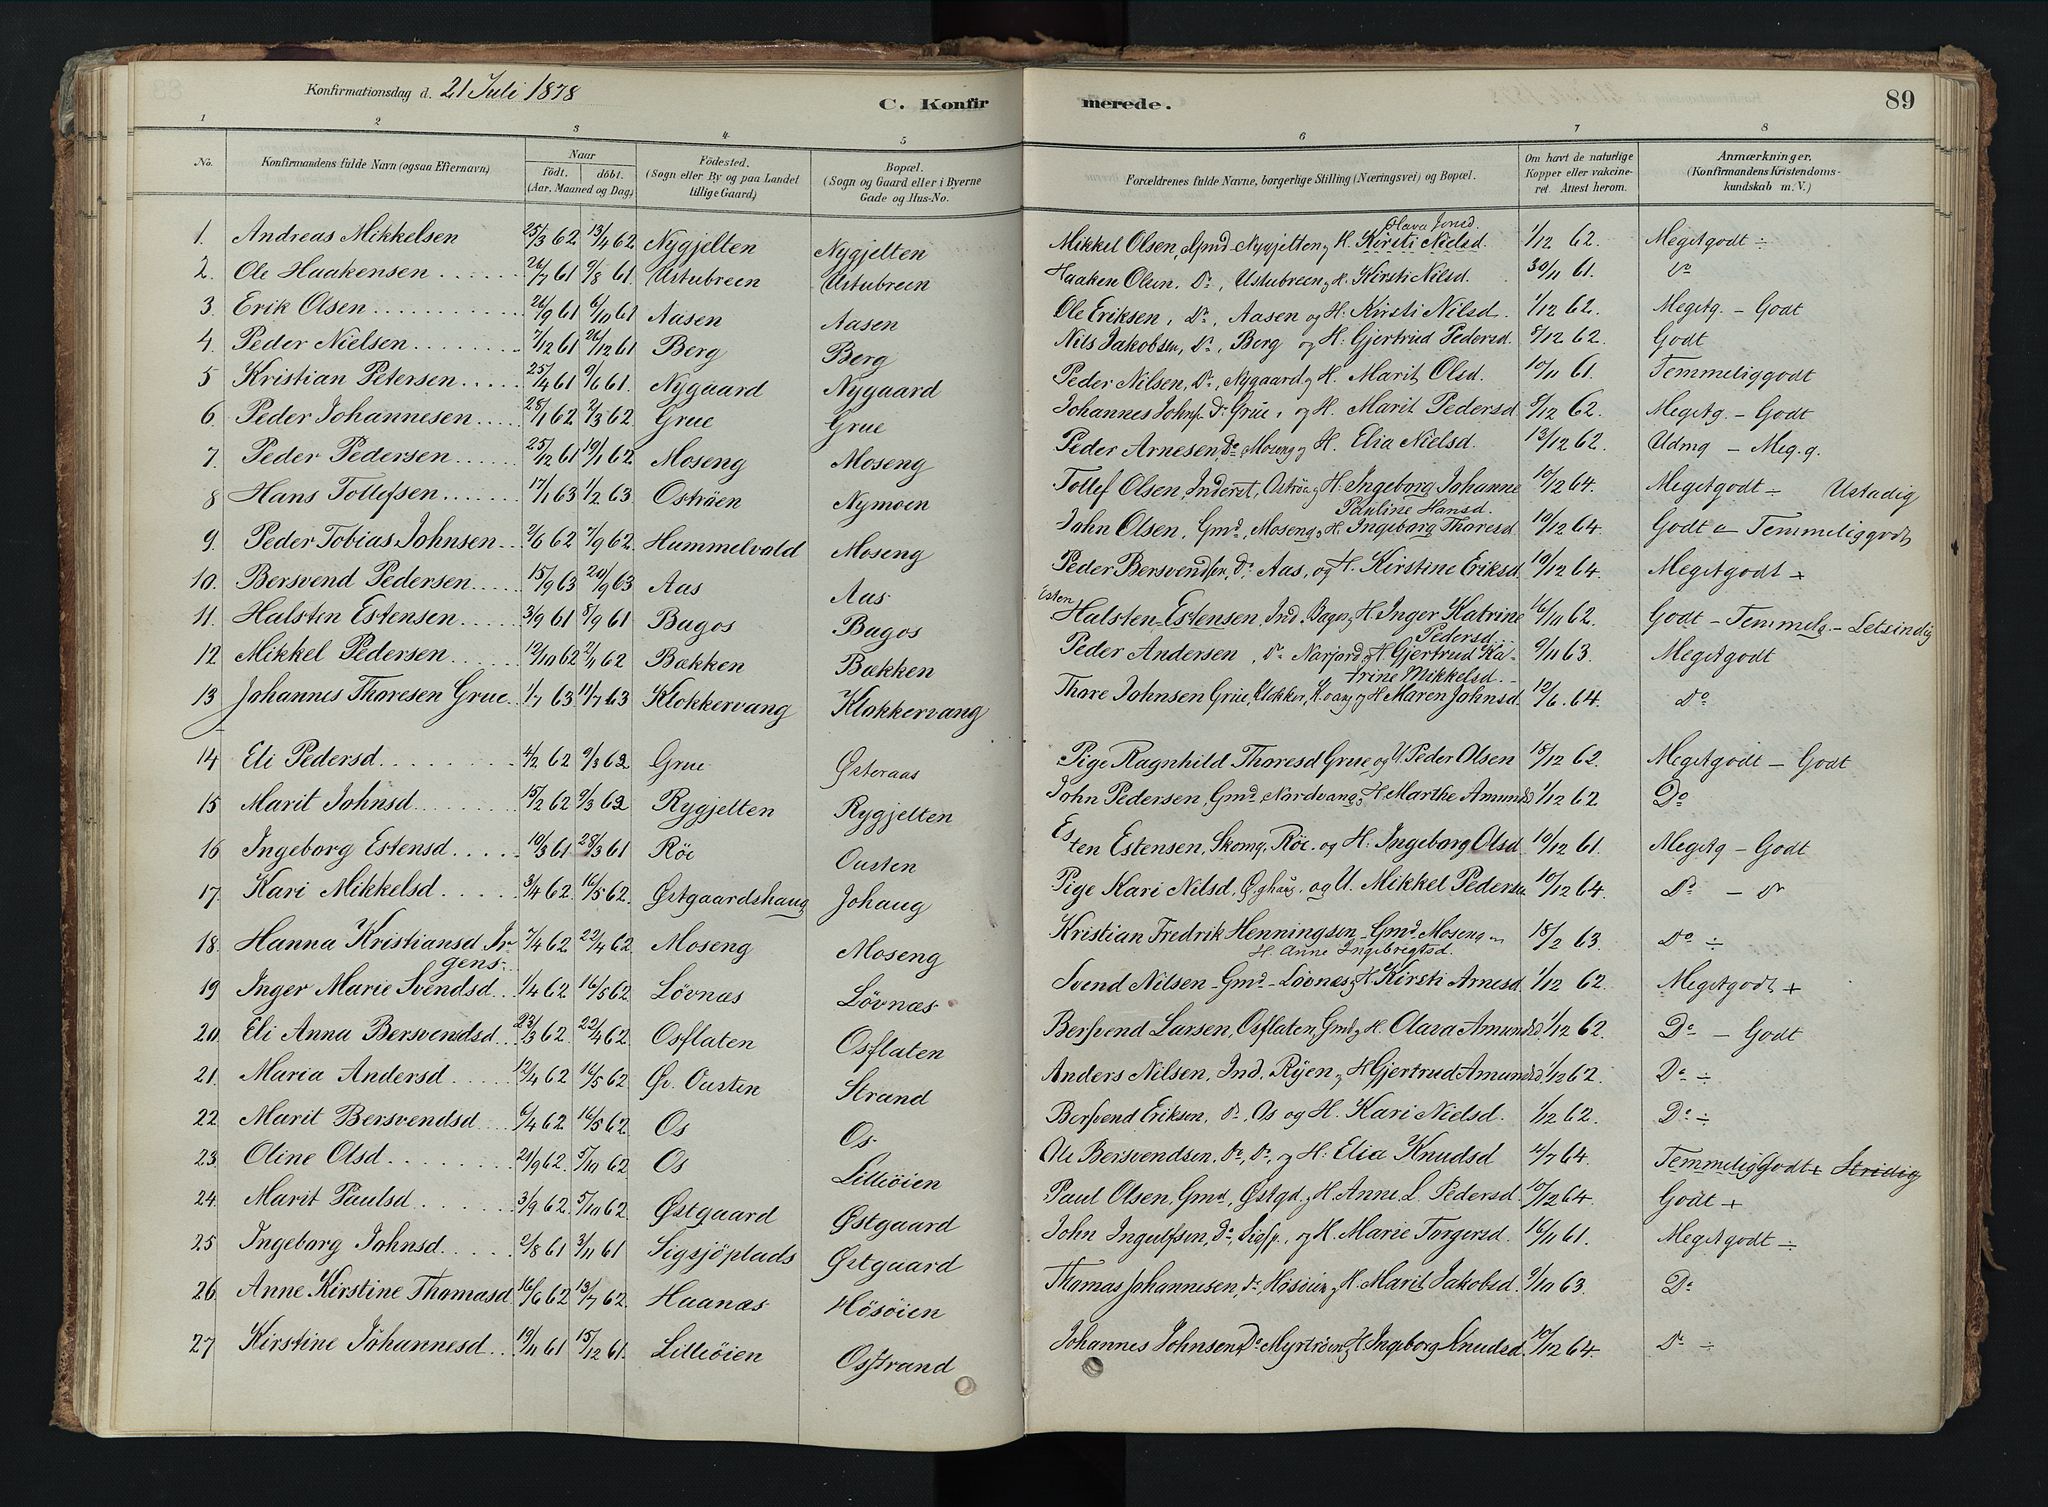 Konfirmationsdag d. 21 Juli 1878
C. Konfirmerede. 89
1 2 3 4 5 6 7 8
No. Konfirmandens fulde Navn (ogsaa Efternavn) Naar födt. döbt. (Aar, Maaned og Dag) Födested. (Sogn eller By og paa Landet tillige Gaard) Bopæl. (Sogn og Gaard eller i Byerne Gade og Hus-No. Forældrenes fulde Navne, borgerlige Stilling (Næringsvei) og Bopæl. Om havt de naturlige Kopper eller vakcineret. Attest herom. Anmærkninger. (Konfirmandens Kristendomskundskab m. V.)
1. Andreas Mikkelsen 25/3 62 13/4 62 Nygjelten Nygjelten Mikkel Olsen, Gmd Nygjelten og H. Kirsti Nielsd. Olava Jonsd. 1/12 62. Megetgodt ÷
2. Ole Haakensen 26/7 61 9/8 61 Ustubreen Ustubreen Haaken Olsen, Do, Ustubreen og H. Kirsti Nilsd. 30/11 61. Do
3. Erik Olsen 26/9 61 6/10 61 Aasen Aasen Ole Eriksen, Do, Aasen og H. Kirsti Nilsd. 1/12 62. Megetg. – Godt
4. Peder Nielsen 7/12 61 26/12 61 Berg Berg Nils Jakobsen, Do, Berg og H. Gjertrud Pedersd. 8/12 62. Godt
5 Kristian Petersen 25/4 61 9/6 61. Nygaard Nygaard Peder Nilsen, Do, Nygaard og H. Marit Olsd. 10/11 61. Temmeliggodt
6. Peder Johannesen 28/1 62 2/3 62. Grue Grue Johannes Johns. Do Grue, og H. Marit Pedersd 8/12 62. Megetg. – Godt
7. Peder Pedersen 25/12 61 19/1 62 Moseng Moseng Peder Arnesen, Do, Moseng og H. Elia Nielsd. 13/12 62. Udmg – Meg.g.
8 Hans Tollefsen 17/1 63 1/2 63. Oströen Nymoen Tollef Olsen, Inderst, Oströa og H. Ingeborg Johanne 10/12 64. Megetgodt ÷ Ustadig
9. Peder Tobias Johnsen 2/6 62 7/9 62. Hummelvold Moseng John Olsen, Gmd, Moseng og H. Ingeborg Thoresd. Pauline Hansd. 10/12 64. Godt – Temmeliggodt
10. Bersvend Pedersen 15/9 63 20/9 63 Aas Aas Peder Bersvendsen, Do Aas, og H. Kirstine Eriksd 10/12 64. Megetgodt +
11. Halsten Estensen 3/9 61 8/9 61 Bagos Bagos Esten Halsten Estensen, Ind. Bagos, H. Inger Katrine Pedersd. 16/11 62. Godt – Temmelg. – Letsindig
12 Mikkel Pedersen 12/10 62 2/11 62 Bækken Bækken Peder Andersen, Do Narjord og H. Gjertrud Katrine Mikkelsd. 9/11 63. Megetgodt
13 Johannes Thoresen Grue 1/7 63 11/7 63 Klokkervang Klokkervang Thore Johnsen Grue, Klokker, K.vang og H. Maren Johnsd. 12/6. 64. Do
14 Eli Pedersd 4/2 62 9/3 62 Grue Østeraas Pige Ragnhild Thoresd Grue og U. Peder Olsen 18/12 62. Megetgodt – Godt
15 Marit Johnsd 15/2 62 9/3 62 Rygjelten Rygjelten John Pedersen, Gmd, Nordvang, H. Marthe Amundsd 1/12 62 Do
16 Ingeborg Estensd 10/3 61 28/3 61 Röe Ousten Esten Estensen, Skomg. Röe. og H. Ingeborg Olsd 19/12 61. Megetg – Godt
17. Kari Mikkelsd 3/4 62 16/5 62. Østgaardshaug Johaug Pige Kari Nilsd, Ø.ghaug, og U. Mikkel Pedersen 10/12 64. Do – Do
18. Hanna Kristiansd Jrgens 7/4 62 22/4 62 Moseng Moseng Kristian Fredrik Henningsen Gmd Moseng H. Anne Ingebregtsd. 18/2 63. Do ÷
19 Inger Marie Svendsd 1/4 62 16/5 62 Lövnæs Lövnæs Svend Nilsen – Gmd – Lövnæs og H. Kirsti Arnesd 1/12 62. Megetgodt +
20. Eli Anna Bersvendsd 23/3 62 22/4 62 Osflaten Osflaten Bersvend Larsen, Osflaten, Gmd og H. Olava Amundsd 1/12 62. Do – Godt
21. Maria Andersd 12/4 62 16/5 62 Øv. Ousten Strand Anders Nilsen, Ind. Ryen og H Gjertrud Amundsd. 1/12 62. Do ÷
22 Marit Bersvendsd 6/4 62 16/5 62 Os Os Bersvend Eriksen, Do, Os og H. Kari Nielsd. 1/12 62. Do ÷
23. Oline Olsd 21/9 62 5/10 62 Os Lilliöien Ole Bersvendsen. Do, Do, og H. Elia Knudsd 4/7 64. TemmeligGodt + Stridig
24. Marit Paulsd 3/9 62 5/10 62 Østgaard Østgaard Paul Olsen, Gmd, Østgd, og H. Anne L. Pedersd. 10/12 64. Godt +
25 Ingeborg Johnsd 2/8 61 3/11 61 Sigsjöplads Østgaard John Ingulfsen, Do, Sigsp., og H. Marie Torgersd. 16/11 61. Megetgodt ÷
26. Anne Kirstine Thomasd 16/6 62 13/7 62. Haanæs Hösöien Thomas Johannesen, Do, Hösöien og H. Marit Jakobsd. 9/10 63. Do
27 Kirstine Johannesd 19/11 61 15/12 61. Lilliöien Osstrand Johannes Johnsen Do Myrtröen og H. Ingeborg Knudsd. 10/12 64. Do ÷